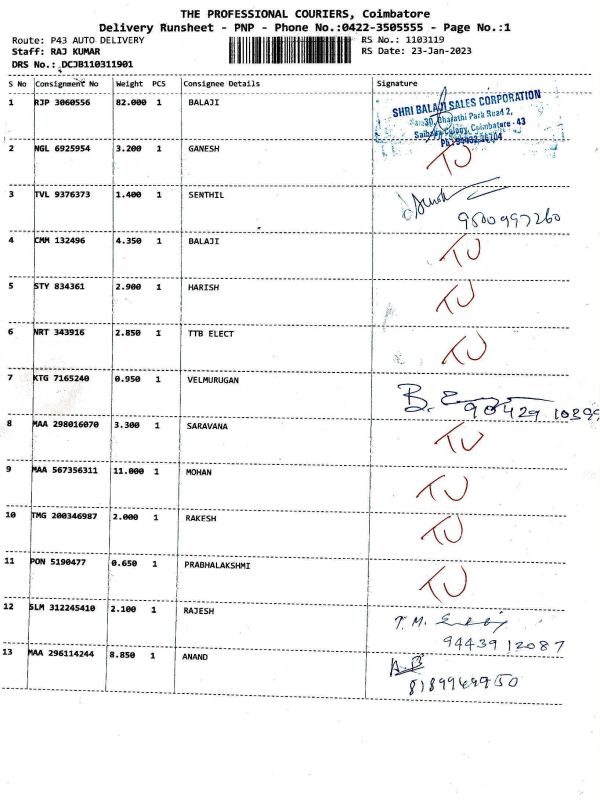 THE PROFESSIONAL COURIERS, Coimbatore
Delivery Runsheet - PNP - Phone No.:0422-3505555 - Page No.:1
Route: P43 AUTO DELIVERY RS No.: 1103119
Staff: RAJ KUMAR RS Date: 23-Jan-2023
DRS No.: DCJB110311901
S No Consignment No Weight PCS Consignee Details Signature
1 RJP 3060556 82.000 1 BALAJI
SHRI BALAJI SALES CORPORATION
Bharathi Park Road 2,
Colony, Coimbatore - 43
2 NGL 6925954 3.200 1 GANESH TU
3 TVL 9376373 1.400 1 SENTHIL
9500997260
4 CMM 132496 4.350 1 BALAJI TU
5 STY 834361 2.900 1 HARISH TU
6 NRT 343916 2.850 1 TTB ELECT TU
7 KTG 7165240 0.950 1 VELMURUGAN B.
90429 10399
8 MAA 298016070 3.300 1 SARAVANA TU
9 MAA 567356311 11.000 1 MOHAN TU
10 TMG 200346987 2.000 1 RAKESH TU
11 PON 5190477 0.650 1 PRABHALAKSHMI TU
12 SLM 312245410 2.100 1 RAJESH T.M.
9443912087
13 MAA 296114244 8.850 1 ANAND A.B